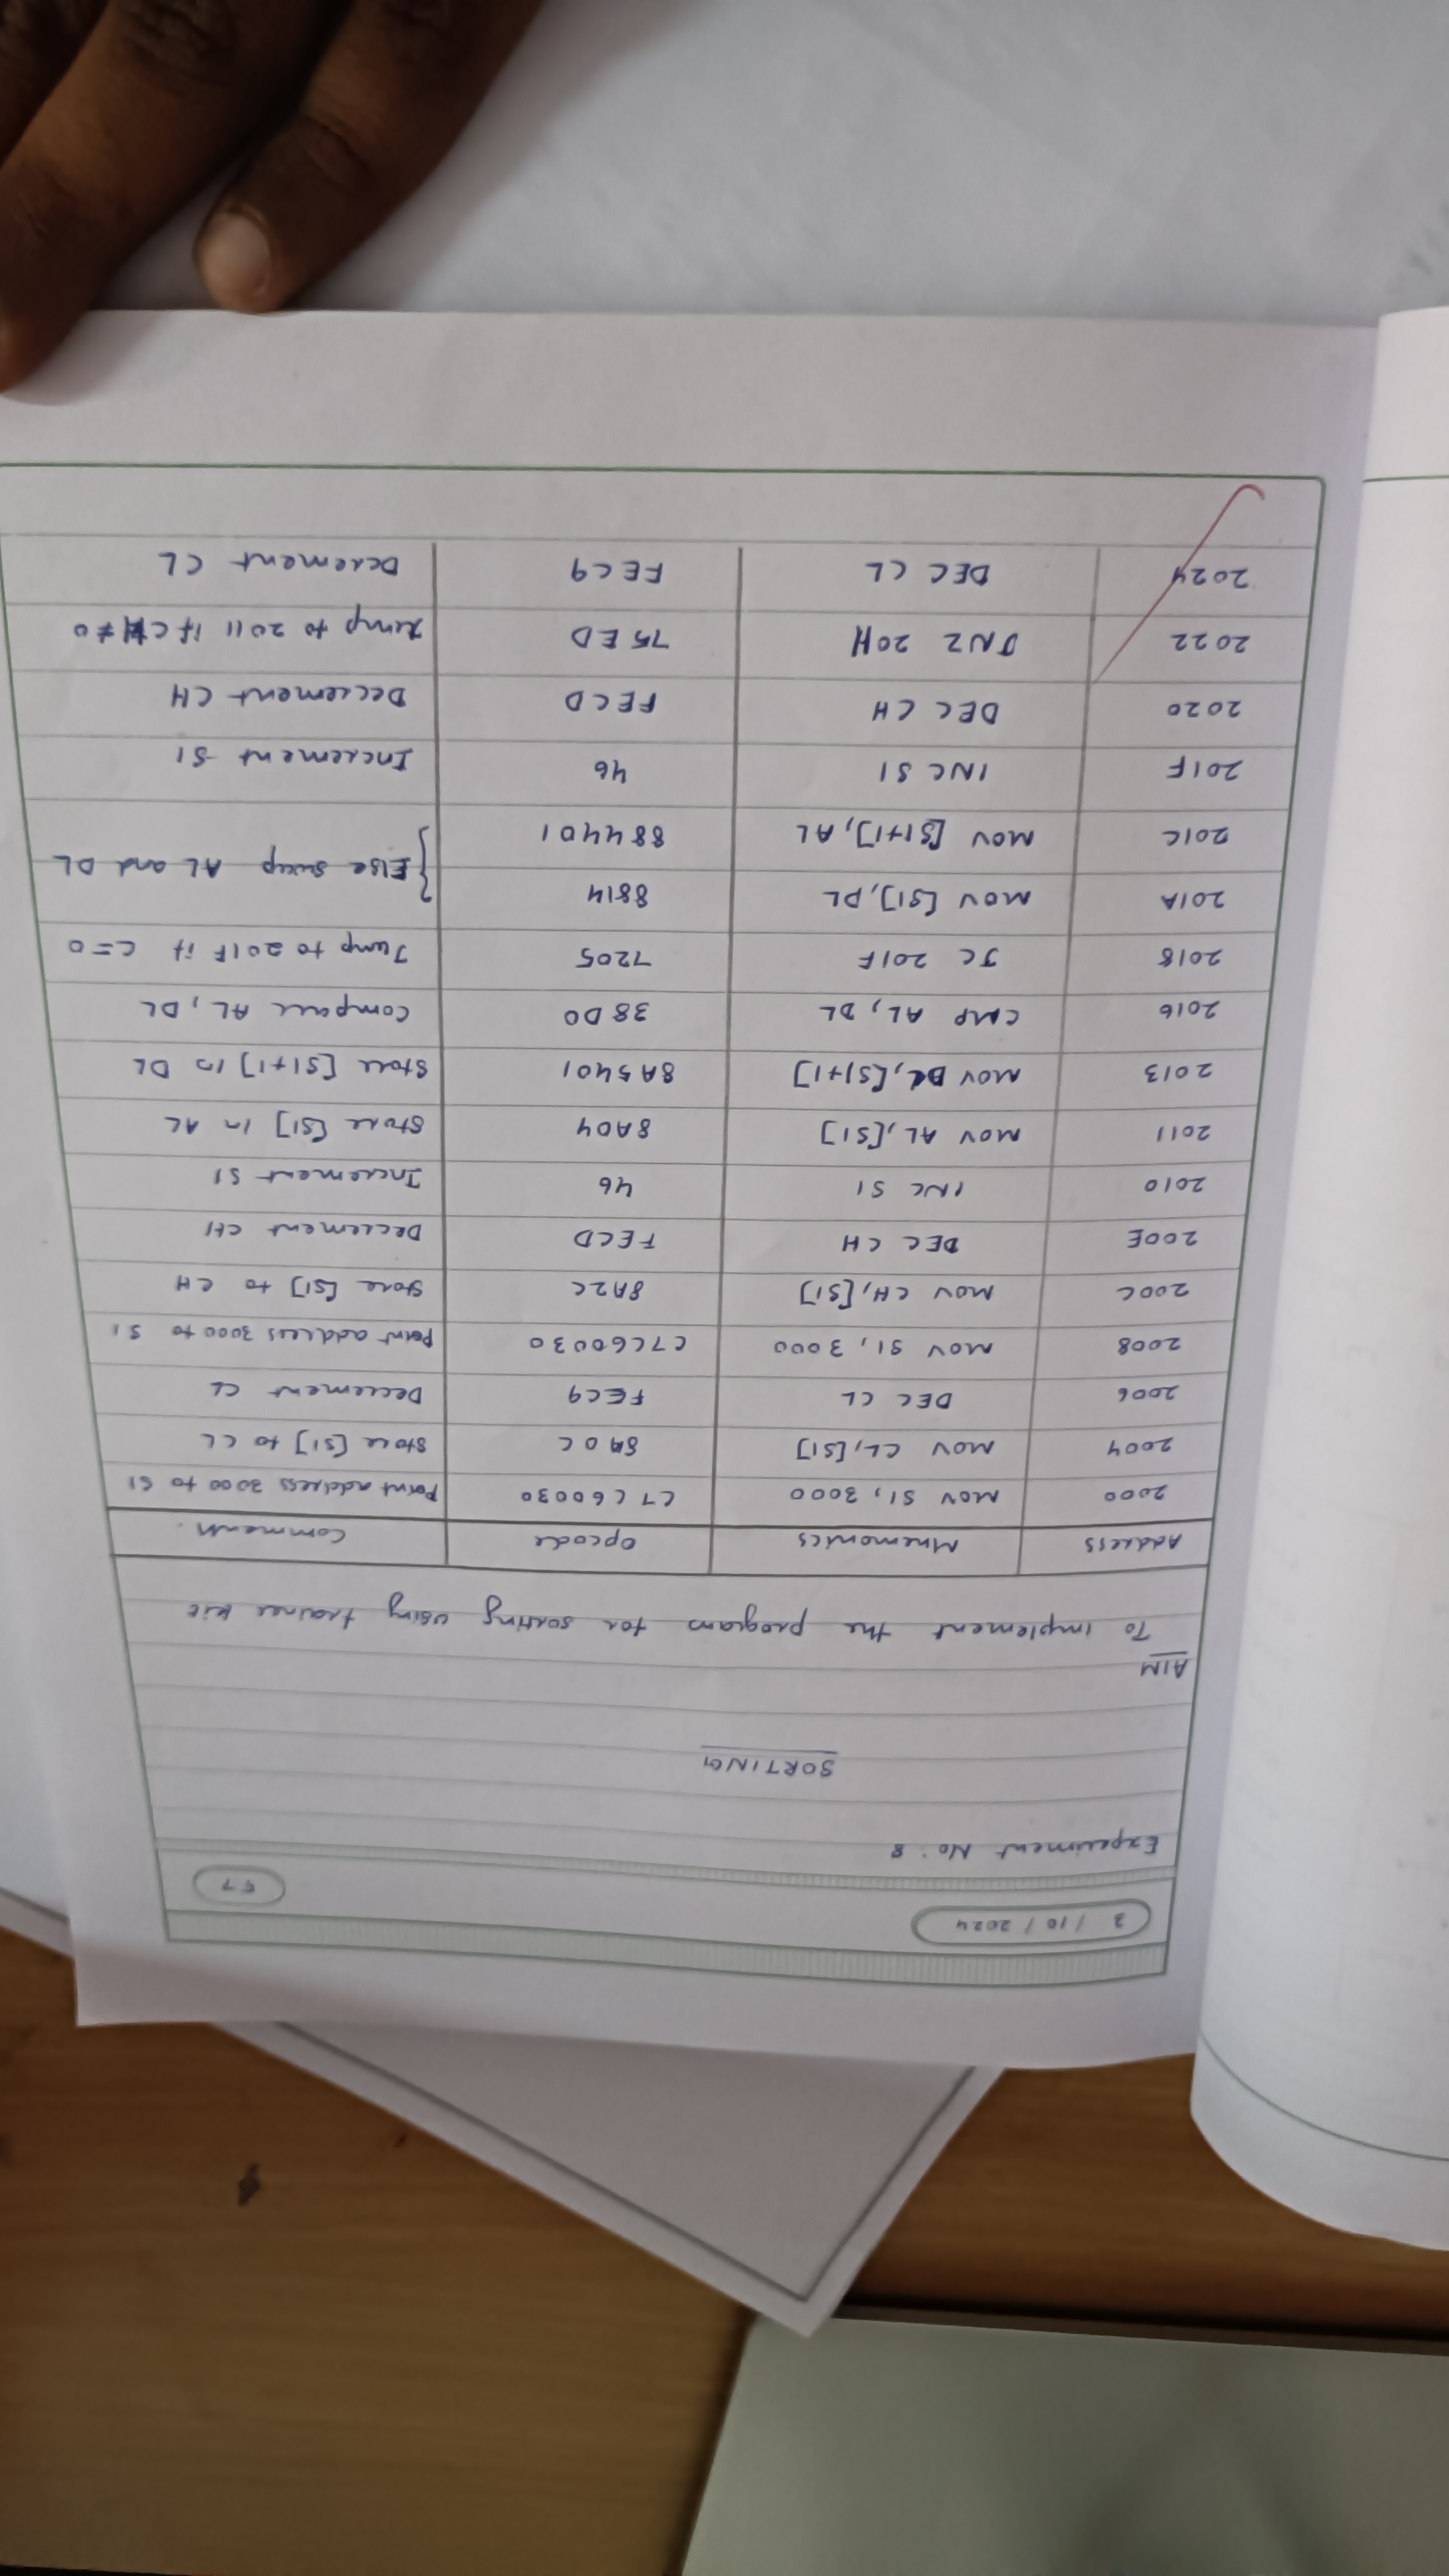 3 / 10 / 2024
57
Experiment No: 8
SORTING
AIM
To implement the program for sorting using trainer kit
Address Mnemonics Opcode Comments.
2000 MOV SI, 3000 C7C60030 Point address 3000 to SI
2004 MOV CL, [SI] 8A0C Store [SI] to CL
2006 DEC CL FEC9 Decrement CL
2008 MOV SI, 3000 C7C60030 Point address 3000 to SI
200C MOV CH, [SI] 8A2C Store [SI] to CH
200E DEC CH FECD Decrement CH
2010 INC SI 46 Increment SI
2011 MOV AL, [SI] 8A04 Store [SI] in AL
2013 MOV DL, [SI+1] 8A5401 Store [SI+1] in DL
2016 CMP AL, DL 38D0 Compare AL, DL
2018 JC 201F 7205 Jump to 201F if C=0
201A MOV [SI], DL 8814
} Else swap AL and DL
201C MOV [SI+1], AL 884401
201F INC SI 46 Increment SI
2020 DEC CH FECD Decrement CH
2022 JNZ 2011 75ED Jump to 2011 if CH≠0
2024 DEC CL FEC9 Decrement CL